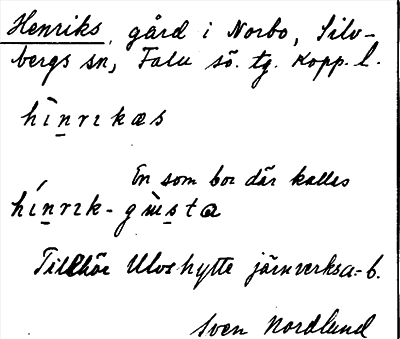 Henriks, gård i Norbo, Silv-
bergs sn, Falu sö. tg. Kopp. l.
hìn̠rɪkæs
En som bor där kallas
hín̠rɪk-gùs̠ta
Tillhör Ulvshytte järnverksa.-b.
Sven Nordlund